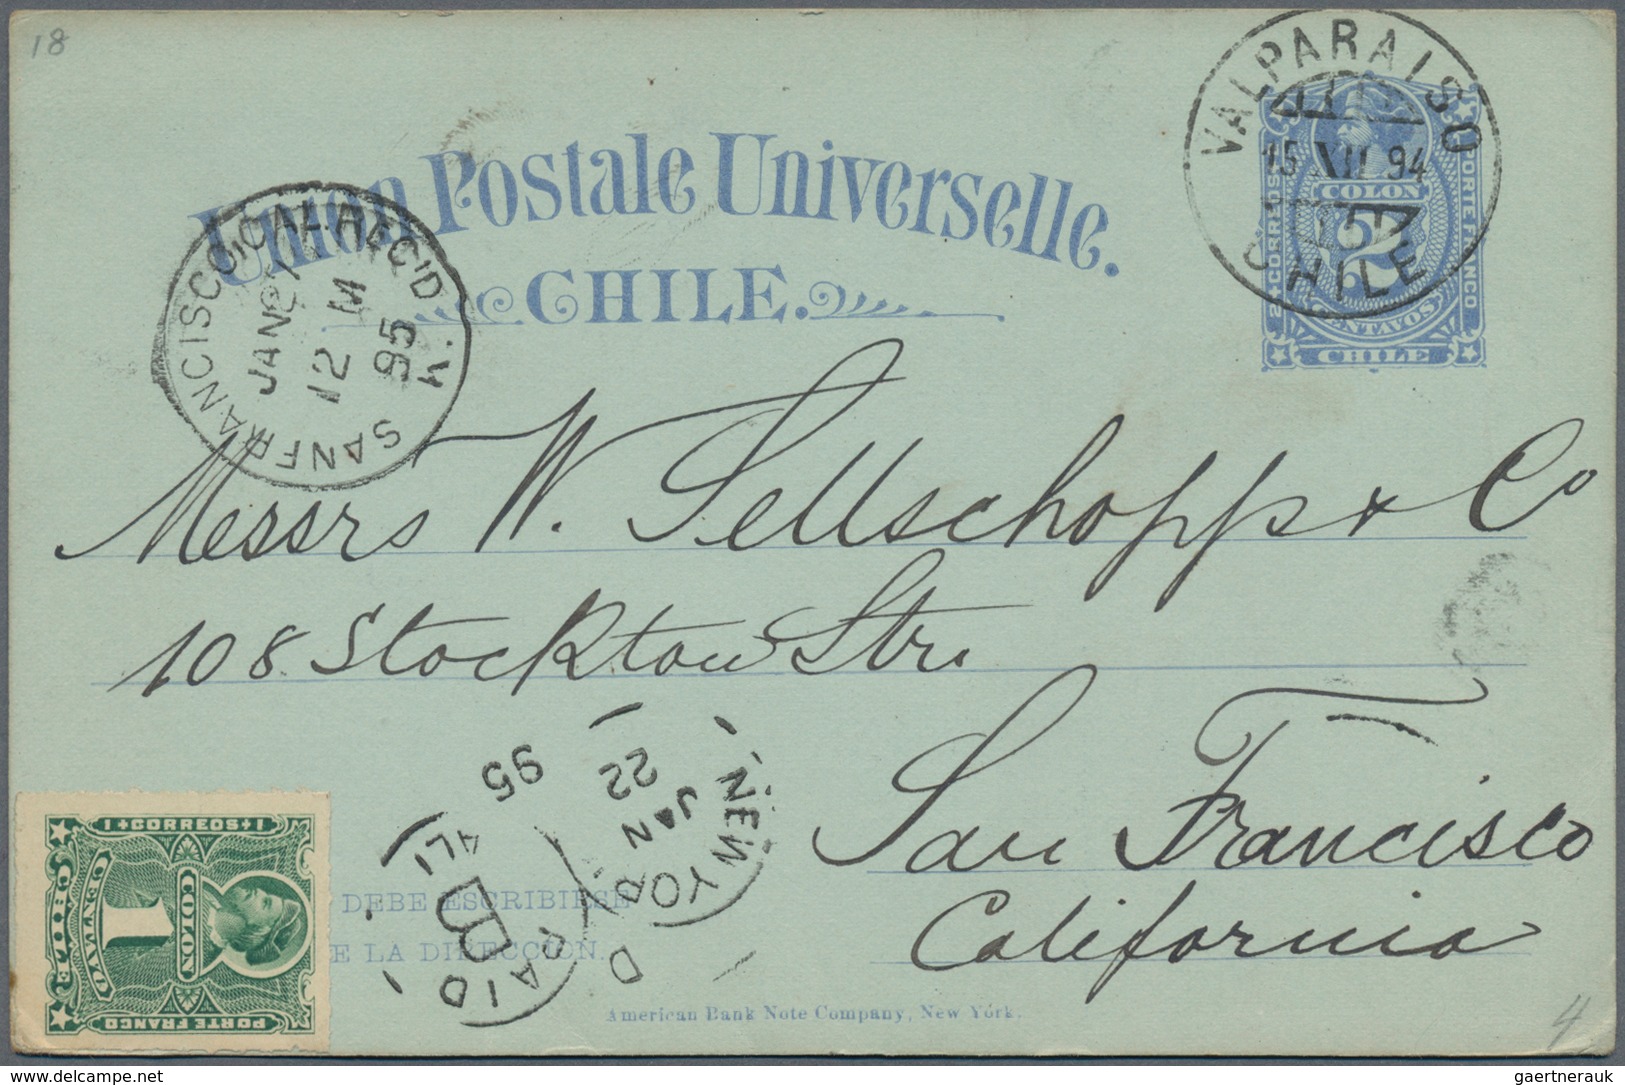 18
Union Postale Universelle.
CHILE.
VALPARAISO
15 XII 94
CHILE
CORREOS
PORTE FRANCO
COLON
2
CENTAVOS
CHILE
SAN FRANCISCO, CAL. REC'D.
JAN
12 M
95
Messrs W. Sellschopp & Co
108 Stockton Str.
San Francisco
California
NEW YORK
JAN
22
95
PAID
B
ALL
D
1 CORREOS 1
CHILE
COLON
1
CENTAVO
PORTE FRANCO
DEBE ESCRIBIRSE
E LA DIRECCION.
American Bank Note Company, New York.
4
gaertnerauk